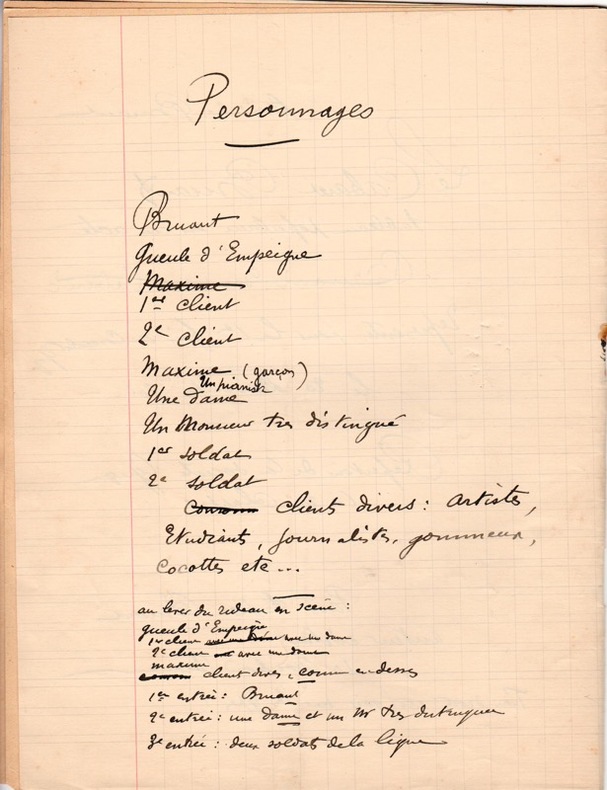 Personnages
Bruant
Gueule d'Empeigne
Maxime
1er client
2e client
Maxime (garçon)
Un pianiste
Une dame
Un Monsieur tres distingué
1er soldat
2e soldat
clients divers : artistes,
Etudiants, journalistes, gommeux,
cocottes etc...
au lever du rideau en scène :
gueule d'Empeigne
1er client avec une dame
2e client avec une dame
maxime
client divers, comme en dessus
1ere entrée : Bruant
2e entrée : une dame et un Mr tres distingué
3e entrée : deux soldats de la ligne